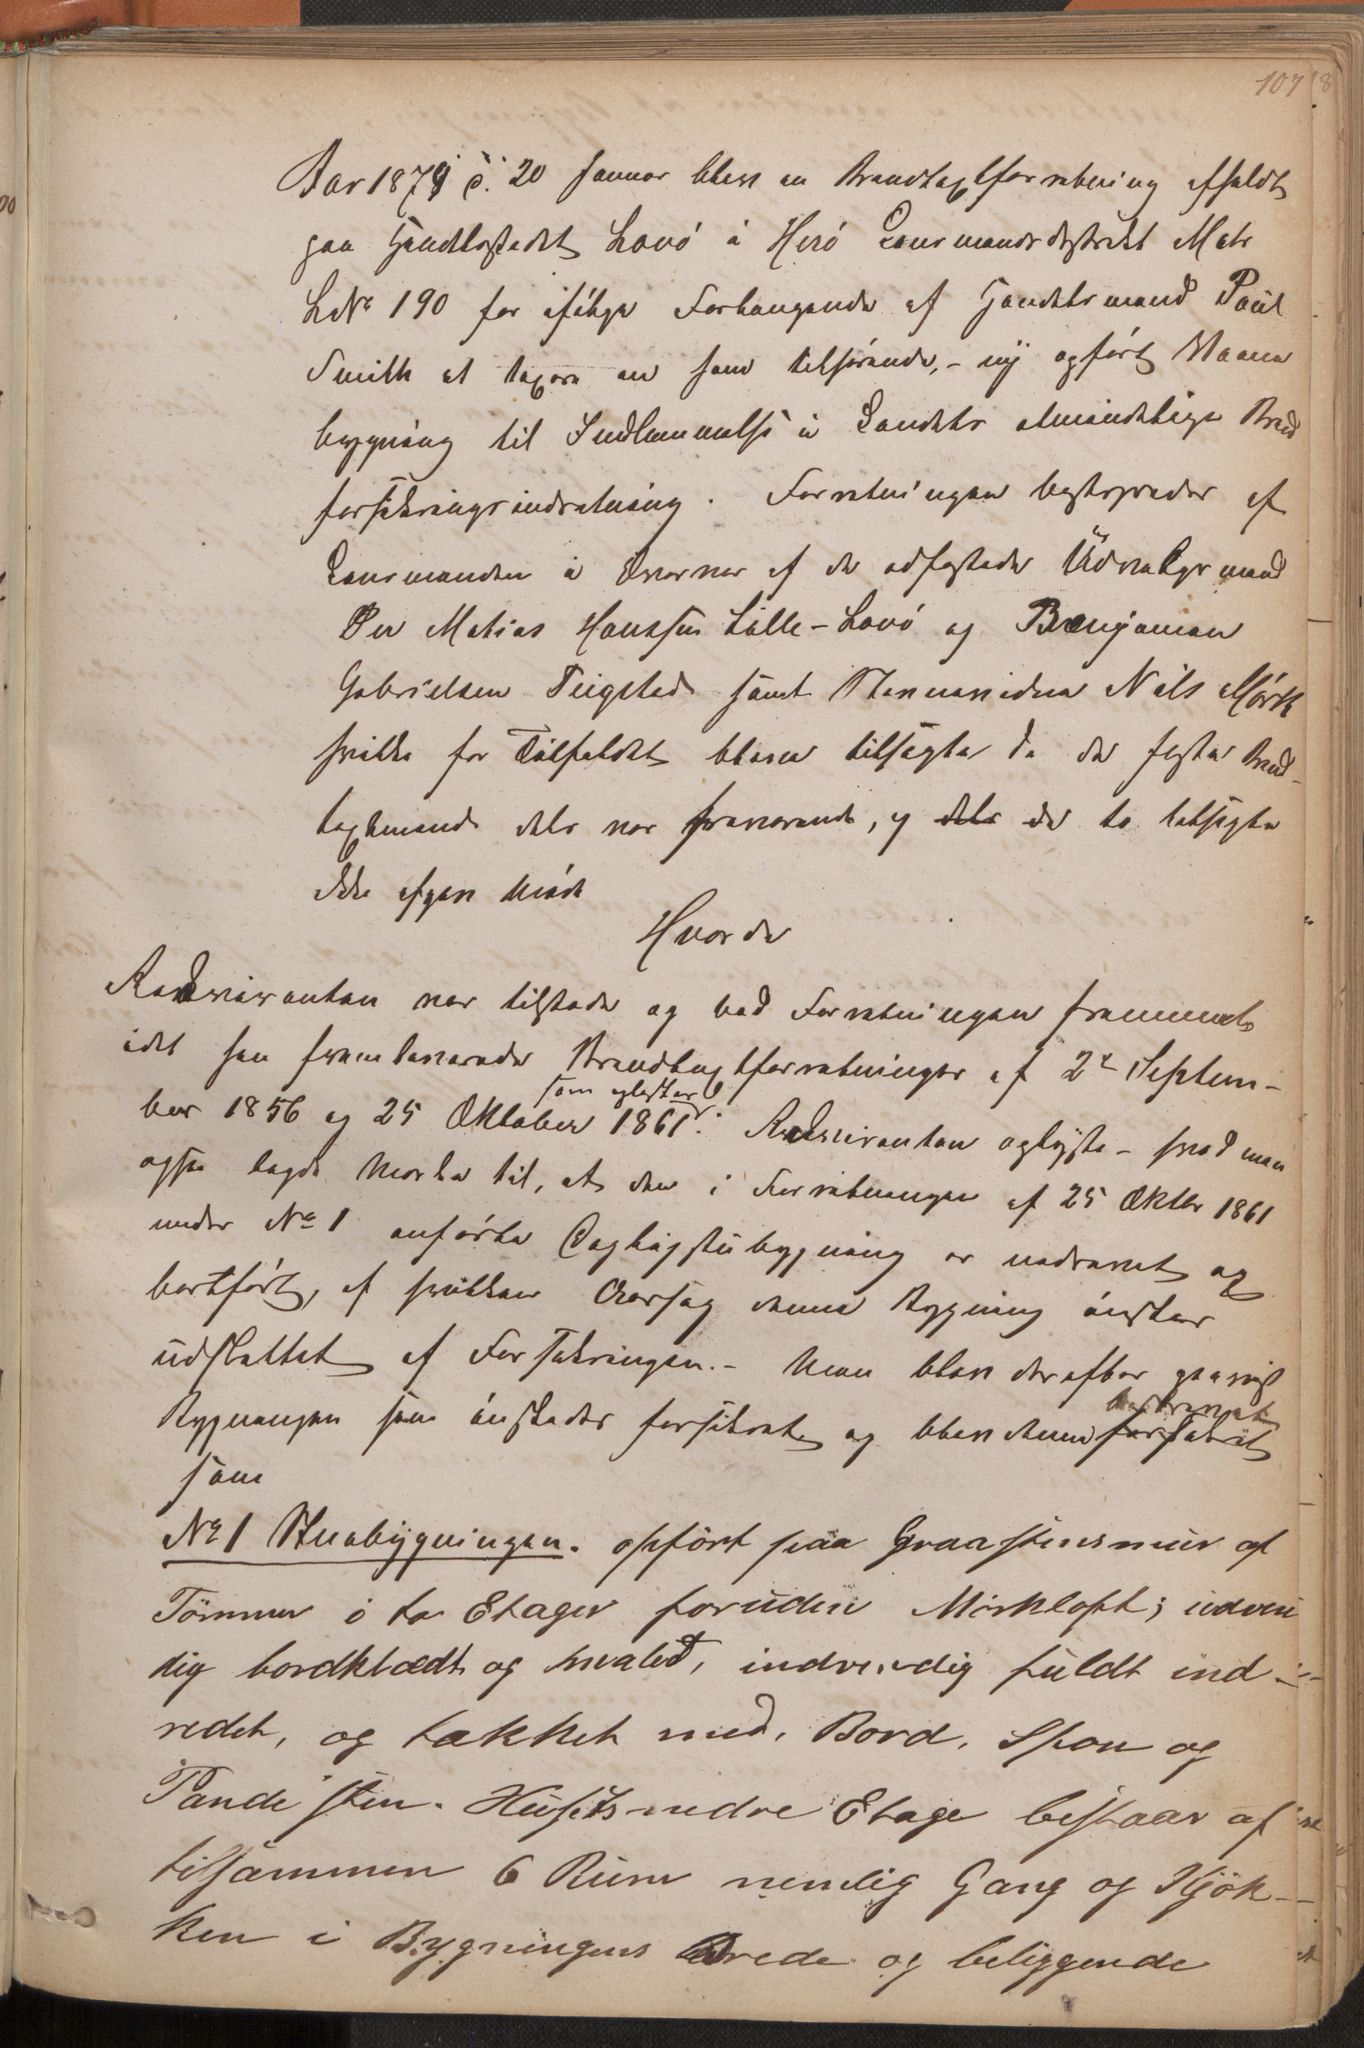 107
Aar 1879 d. 20 Januar blev en Brandtaxtforretning afholdt
paa Handelsstedet Lovö i Herö Lensmandsdistrikt Matr
L№ 190 for ifölge Forlangende af Handelsmand Paul
Smith at taxere en ham tilhörende, – ny opfört Vaane
bygning til Indlemmelse i Landets almindelige Brand
forsikringsindretning. Forretningen bestyredes af
Lensmanden i Overvær af de edfæstede Udvalgsmænd
Ole Matias Hanssen Lille-Lovö og Benjamin
Gabrielsen Teigstad samt Stenersidne Nils Mörk
hvilke for Tilfældet bleve tilsagte da de faste Brand-
taxtmænd dels var fraværende, og dels de to tilsagte
ikke afgav Möde
Hvorda
Rekvirenten var tilstede og bad Forretningen fremmed
idet han fremleverede Brandtaxtforretninger af 2den Septem-
ber 1856 og 25 Oktober 1861 som oplæstes. Rekvirenten oplyste – hvad man
ogsaa lagde Mærke til, at den i Forretningen af 25 Oktbr 1861
under № 1 anförte Dagligstubygning er nedrevet og
bortfört, af hvilken Aarsag denne Bygning önskes
udslettet af Forsikringen. – Man blev derefter paavist
Bygningen som önskedes forsikret og blev denne forsikret beskrevet
som
№ 1 Stuebygningen. opfört paa Graastensmur af
Tömmer i to Etager foruden Mörkloft; udven
dig bordklædt og hvalet, indvendig fuldt ind-
redet, og tækket med, Bord, Spon og
Pandesten. Husets nedre Etage bestaar af
tilsammen 6 Rum nemlig Gang og Kjök-
ken i Bygningens Brede og beliggende